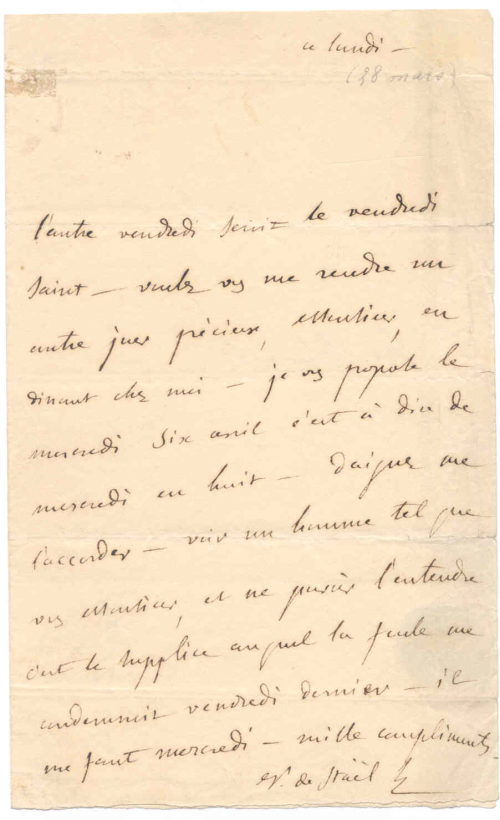 ce lundi —
(28 mars)
l'autre vendredi seroit le vendredi
saint — voulez vs me rendre un
autre jour précieux, Monsieur, en
dinant chez moi — je vs propose le
mercredi six avril c'est à dire de
mercredi en huit — daignez me
l'accorder — voir un homme tel que
vs Monsieur, et ne pouvoir l'entendre
c'est le supplice auquel la foule me
condamnoit vendredi dernier — il
me faut mercredi — mille compliments.
de Staël